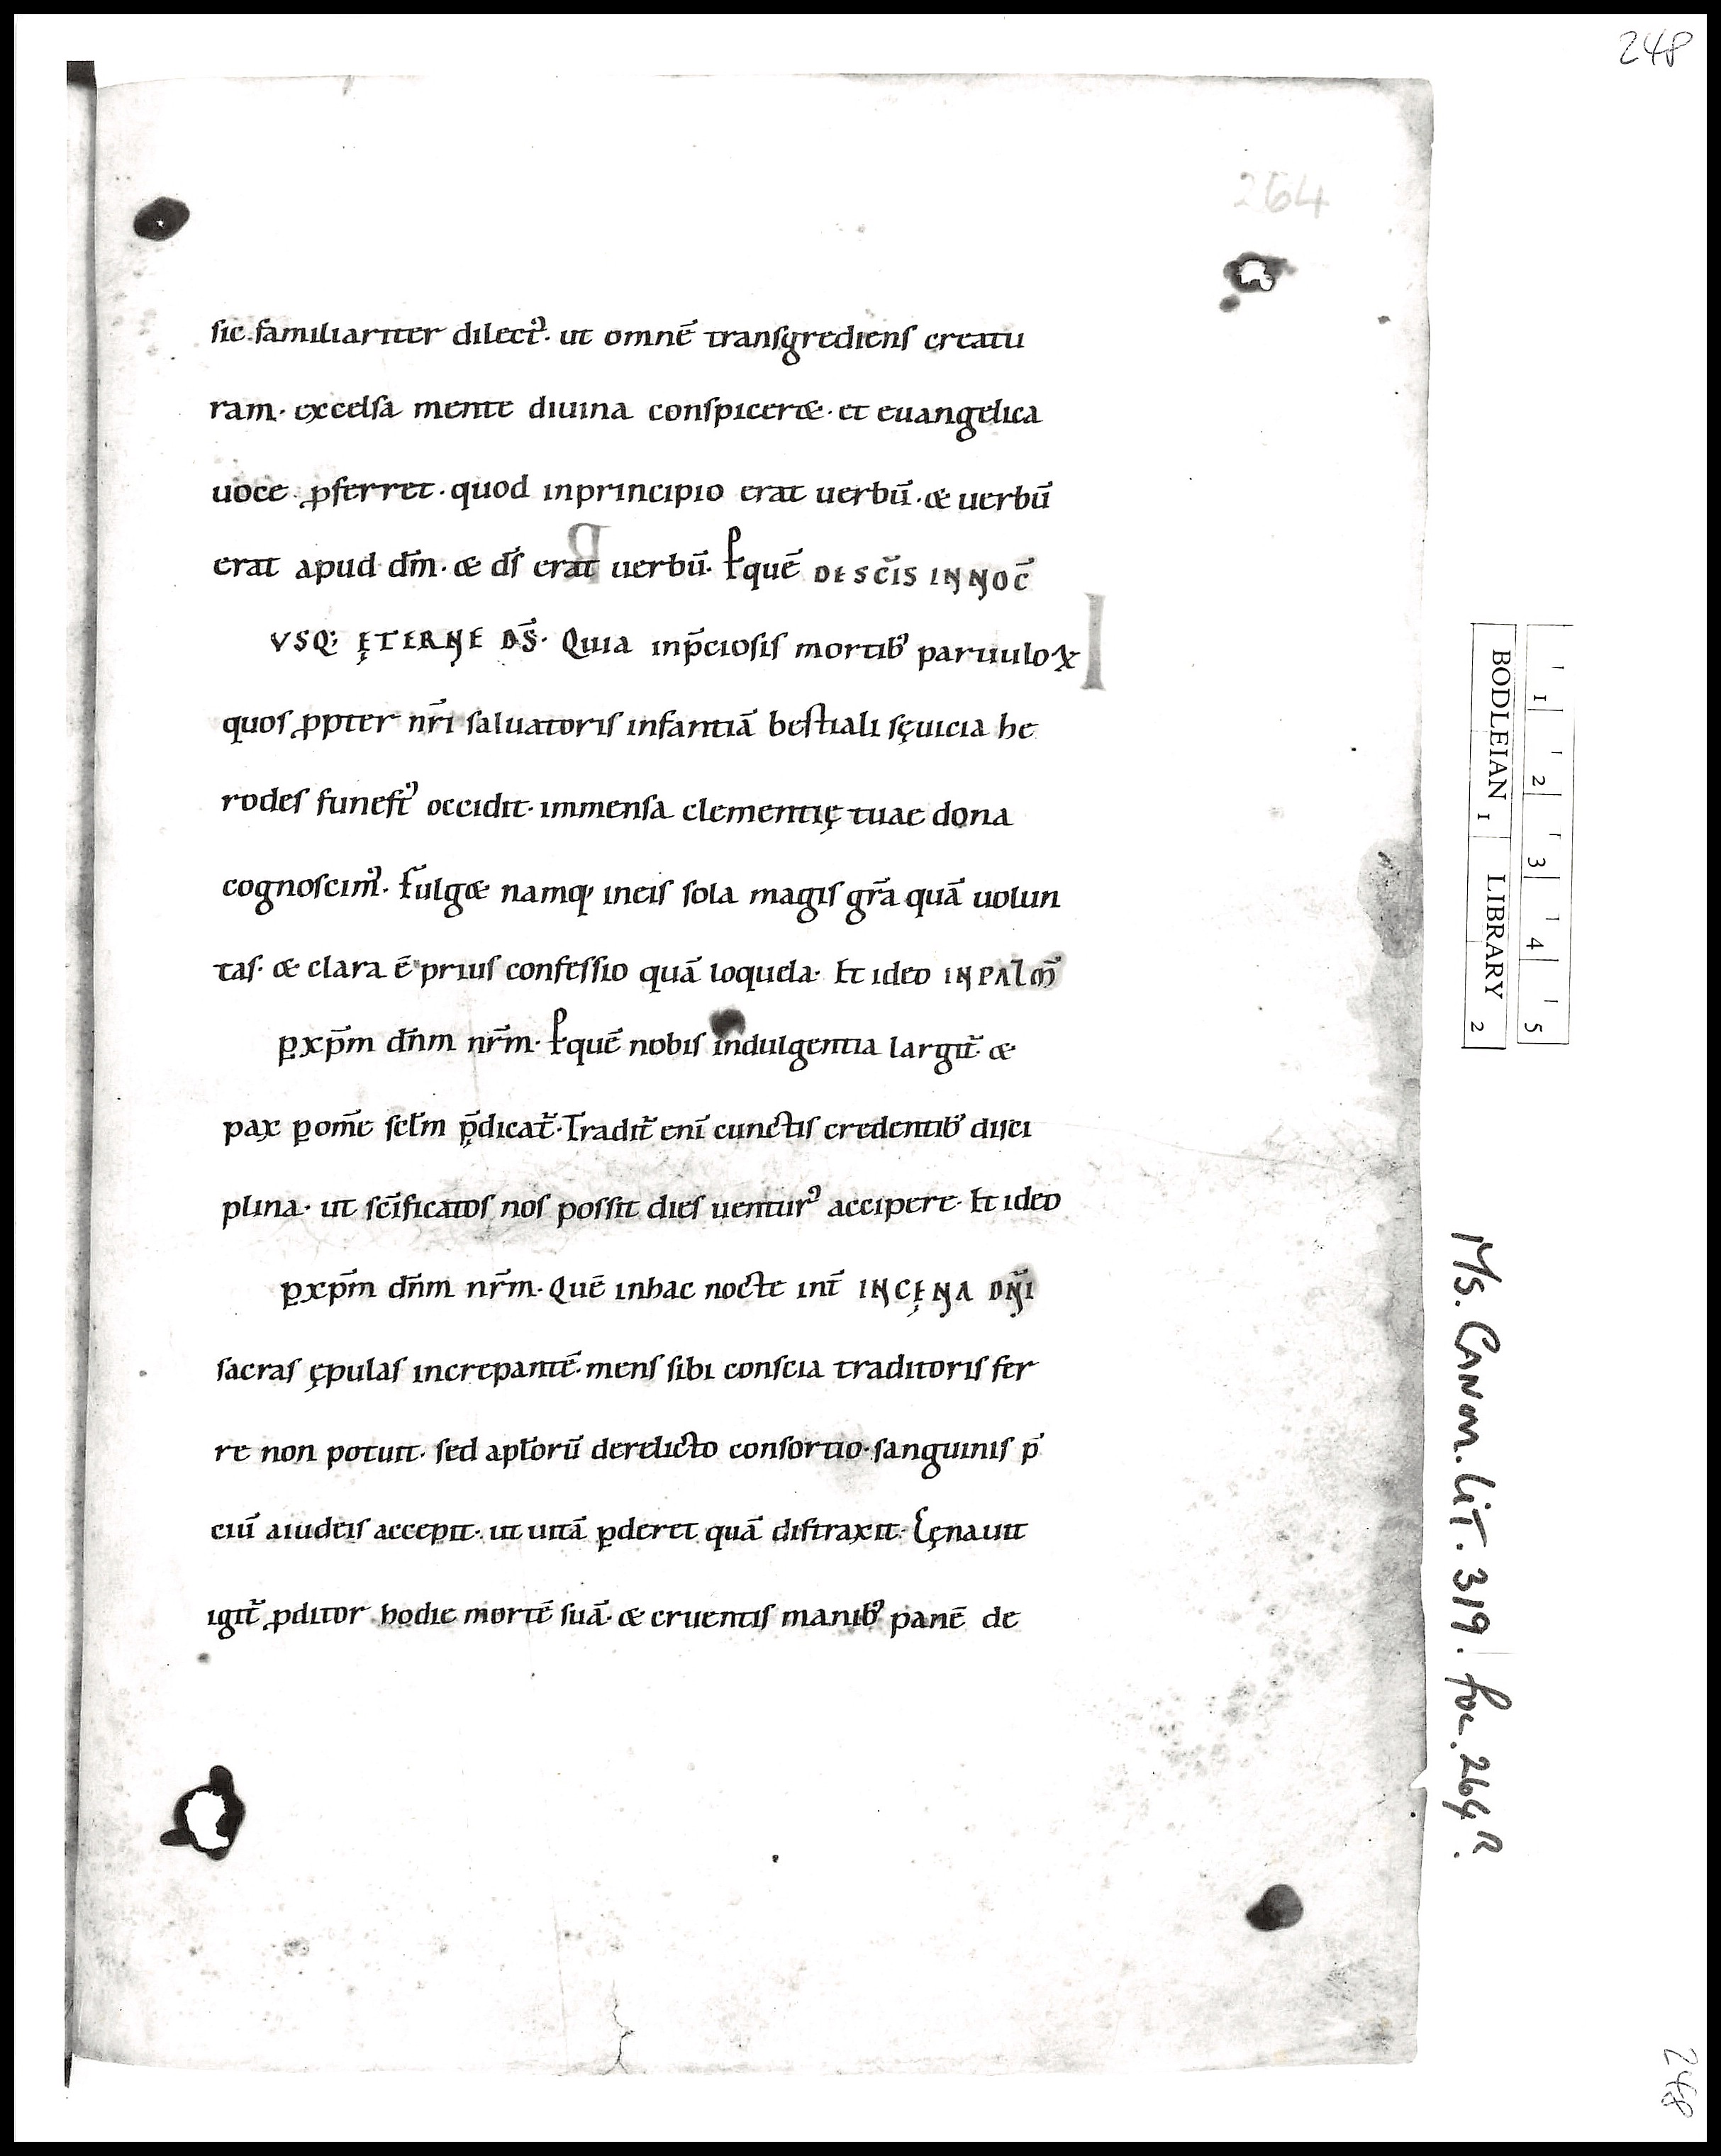 248
264
sic familiariter dilectꝰ· ut omnē transgrediens creatu
ram· excelsa mente diuina conspiceret· et euangelica
uoce ꝓferret· quod inprincipio erat uerbū· & uerbū
erat apud dm̄· & ds̄ erat uerbū· Ꝑquē DE SCIS̄ INNOC̄
VSQ: ĘTERNE DS̄· Quia inp̄ciosis mortibꝰ paruuloꝝ
quos ꝓpter nr̄i saluatoris infantiā bestiali sęuicia he
rodes funestꝰ occidit· immensa clementię tuae dona
cognoscimꝰ· Fulg& namq; ineis sola magis gr̄a quā uolun
tas· & clara ē prius confessio quā loquela· Et ideo IN PALM̄
ꝑxp̄m dn̄m nr̄m· Ꝑquē nobis indulgentia largit̄· &
pax ꝑom̄e sc̄lm p̄dicat̄· Tradit̄ enī cunctis credentibꝰ disci
plina· ut sc̄ificatos nos possit dies uenturꝰ accipere· Et ideo
ꝑxp̄m dn̄m nr̄m· Quē inhac nocte int̄ INCĘNA DN̄I
sacras ępulas increpantē· mens sibi conscia traditoris fer
re non potuit· sed apl̄orū derelicto consortio· sanguinis p̄
ciū aiudeis accepit· ut uitā ꝑderet quā distraxit· Cęnauit
igit̄ ꝓditor hodie mortē suā· & cruentis manibꝰ panē de
BODLEIAN LIBRARY
1 2
1 2 3 4 5
Ms. Canon. Lit. 319. fol. 264R.
248